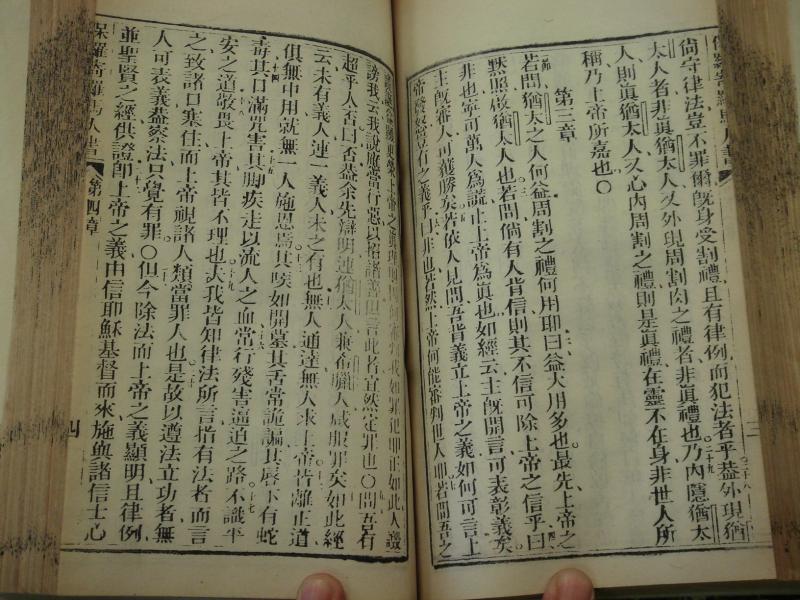 尙守律法豈不罪爾旣身受割禮且有律例而犯法者乎蓋外現猶
太人者非眞猶太人又外現周割肉之禮者非眞禮也乃內隱猶太
人則眞猶太人又心內周割之禮則是眞禮在靈不在身非世人所
稱乃上帝所嘉也〇
第三章
若問猶太之人何益周割之禮何用耶曰益大用多也最先上帝之
默照及猶太人也若問倘有人肯信則其不信可除上帝之信乎曰
非也寧可萬人爲謊止上帝爲眞也如經云主旣開言可表彰義矣
主旣審人可獲勝矣若依人見問吾背義立上帝之義如何可言上
帝發怒豈有之義乎曰非也若然上帝何能審判世人耶若問吾之
上帝之眞理則何罪犯耶正如此人
謗我云我說應當行惡以始諸善但言此者宜然定罪也〇問吾有
超乎人否曰否蓋余先辯明連猶太人兼希臘人咸服罪矣如此經
云未有義人連一義人未之有也無人通達無人求上帝皆離正道
俱無中用就無一人施恩焉其喉如開墓其舌常詭騙其唇下有蛇
毒其口滿咒害其脚疾走以流人之血常行殘害逼迫之路不識平
安之道敬畏上帝其皆不理也夫我皆知律法所言指有法者而言
之致諸口塞住而上帝視諸人類當罪人也是故以遵法立功者無
人可表義蓋察法只覺有罪〇但今除法而上帝之義顯明且律例
並聖賢之經俱證卽上帝之義由信耶穌基督而來施與諸信士心
保羅寄羅馬人書 第四章 四